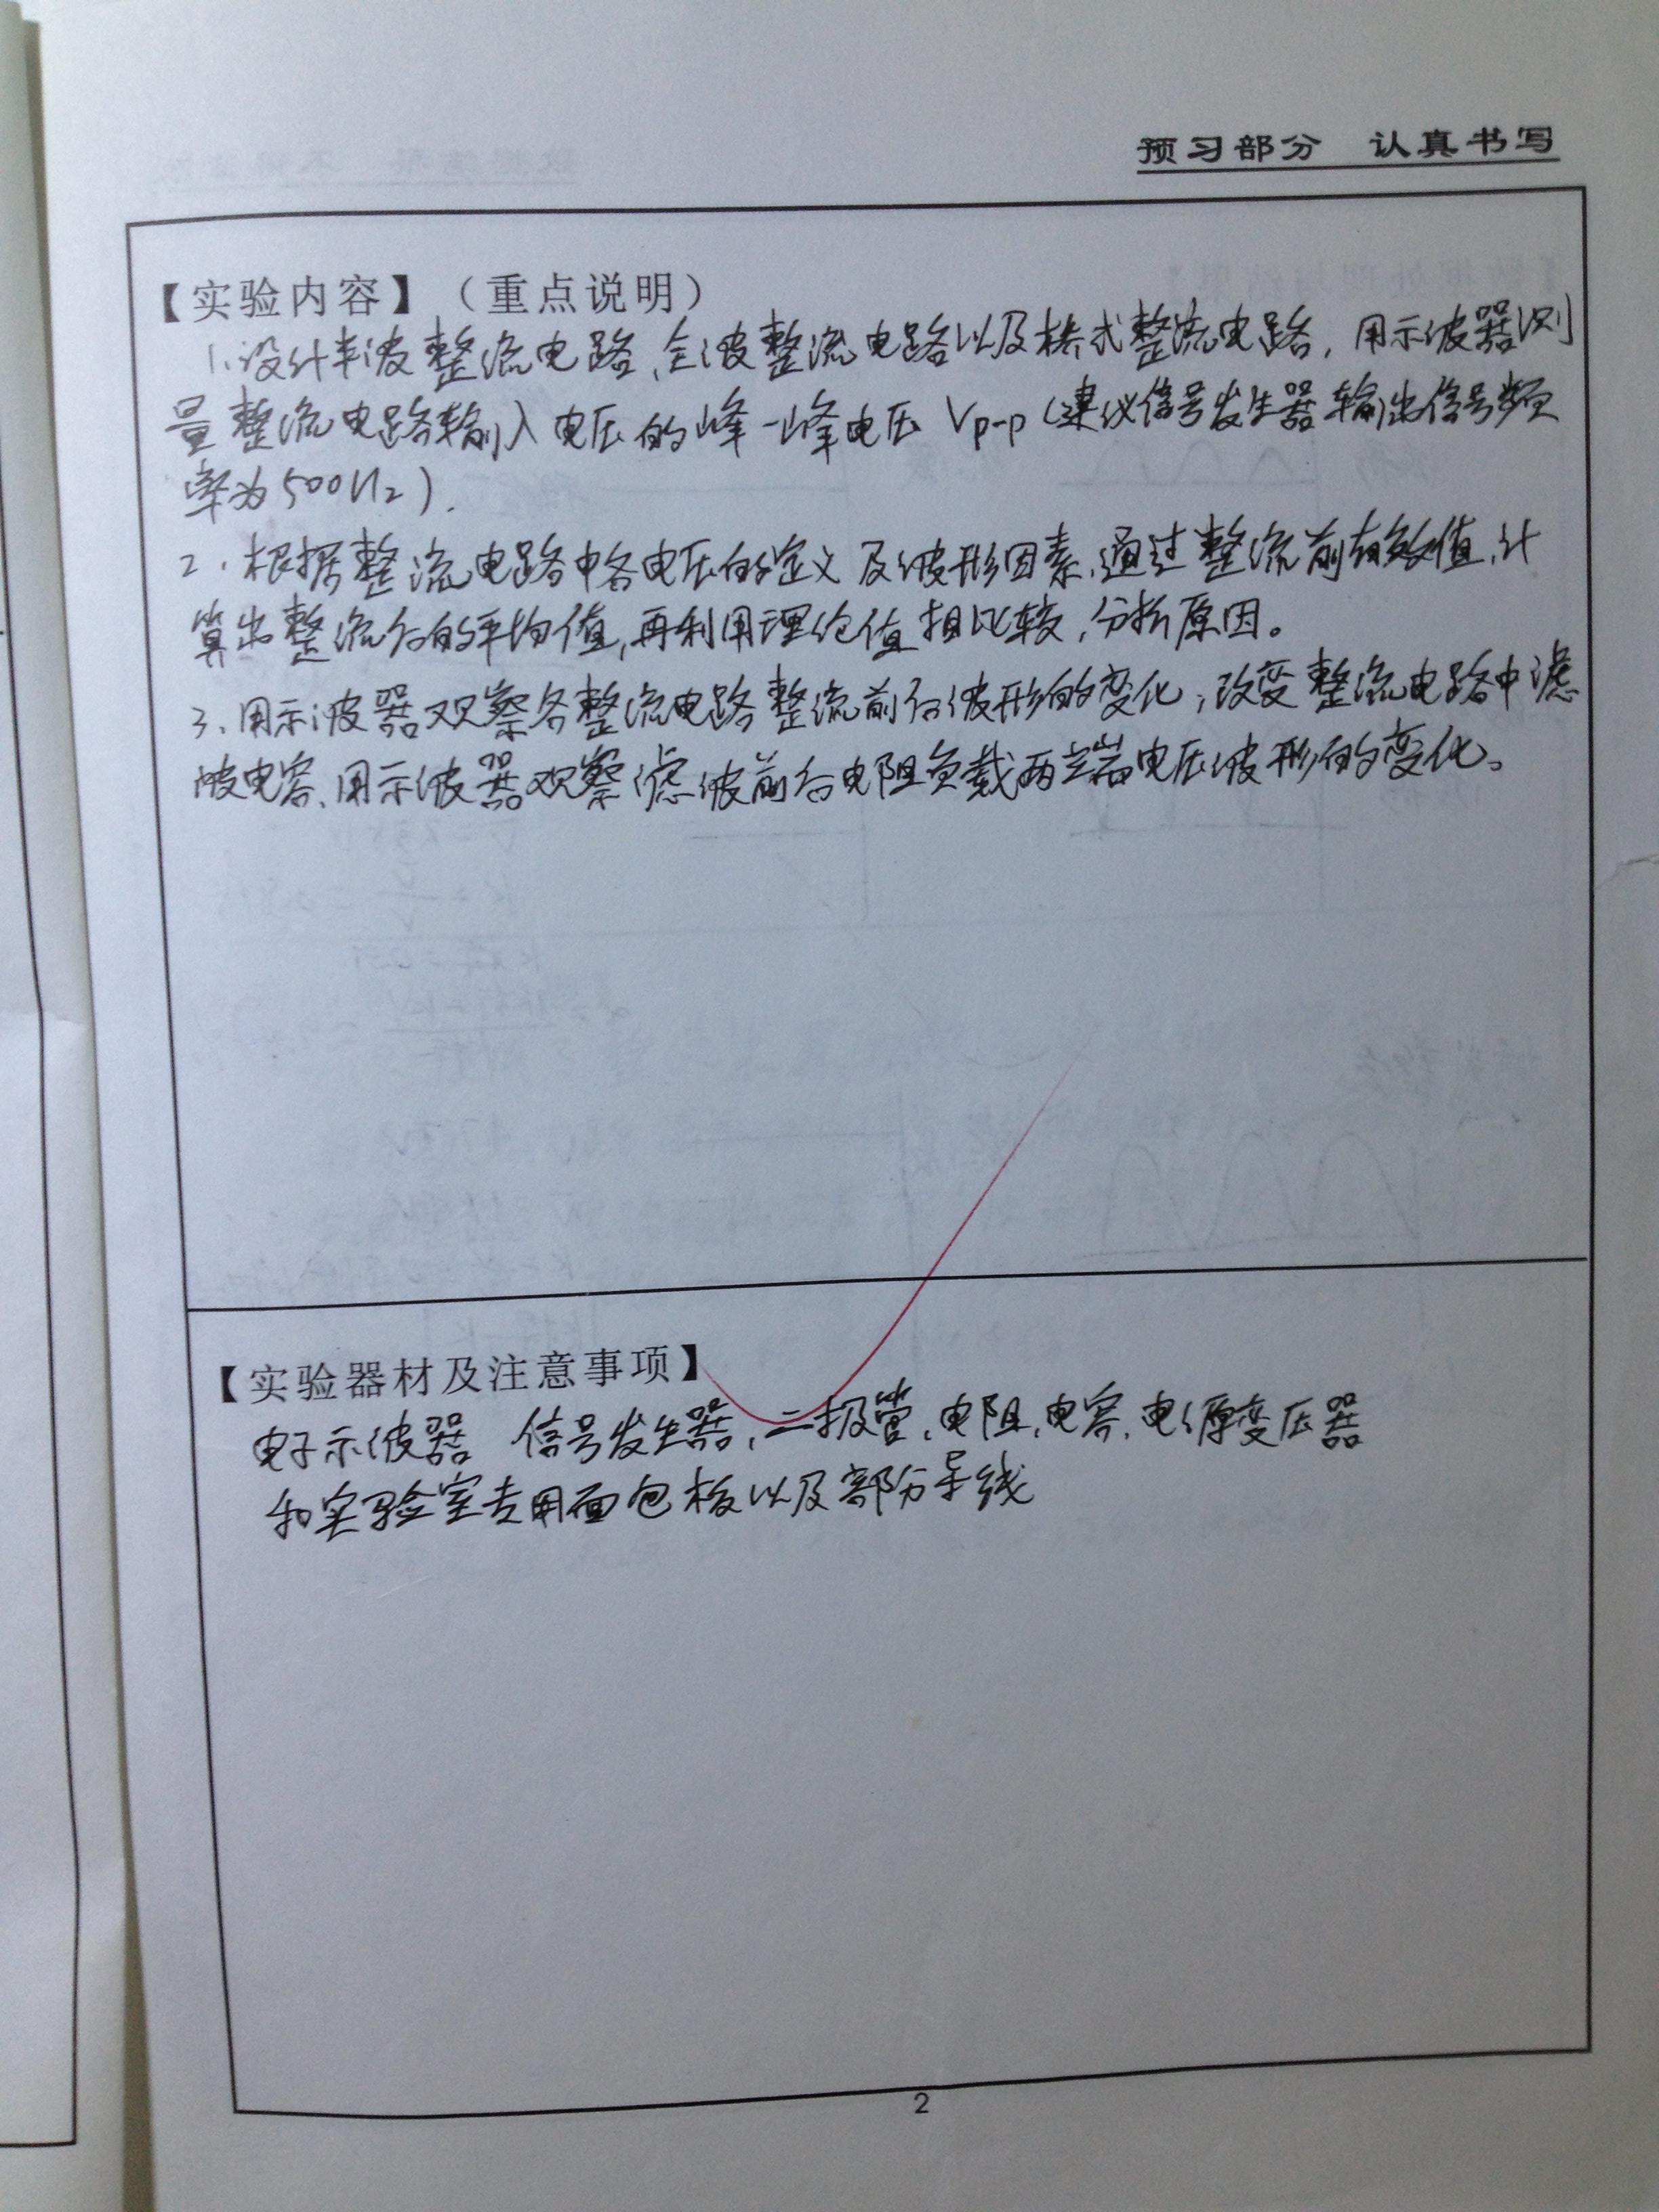 预习部分 认真书写
【实验内容】（重点说明）
1.设计半波整流电路、全波整流电路以及桥式整流电路，用示波器测
量整流电路输入电压的峰-峰电压 Vp-p（建议信号发生器输出信号频
率为500Hz）.
2.根据整流电路中各电压的定义及波形因素,通过整流前有效值,计
算出整流后的平均值,再利用理论值相比较,分析原因。
3.用示波器观察各整流电路整流前后波形的变化;改变整流电路中滤
波电容、用示波器观察滤波前后电阻负载两端电压波形的变化。
【实验器材及注意事项】
电子示波器 信号发生器、二极管、电阻、电容、电源变压器
和实验室专用面包板以及部分导线
2